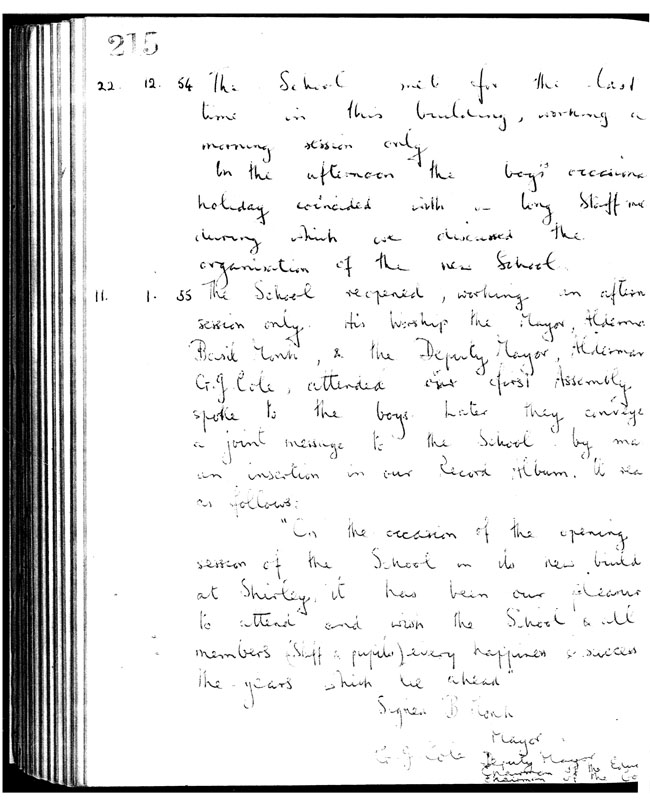 215
22. 12. 54 The School met for the last
time in this building, working a
morning session only
In the afternoon the boys' occasiona
holiday coincided with a long Staff me
during which we discussed the
organisation of the new School.
11. 1. 55 The School reopened, working an aftern
session only. His Worship the Mayor, Alderma
Basil Monk, & the Deputy Mayor, Alderman
G.J Cole, attended our first Assembly
spoke to the boys. Later they conveye
a joint message to the School by ma
an insertion in our Record Album. It rea
as follows:
"On the occasion of the opening
session of the School in its new build
at Shirley, it has been our pleasur
to attend and wish the School & all
members (Staff & pupils) every happiness & success
the years which lie ahead"
Signed B Monk
Mayor
G.J Cole Deputy Mayor
Chairman of the Educ
Chairman of the Co